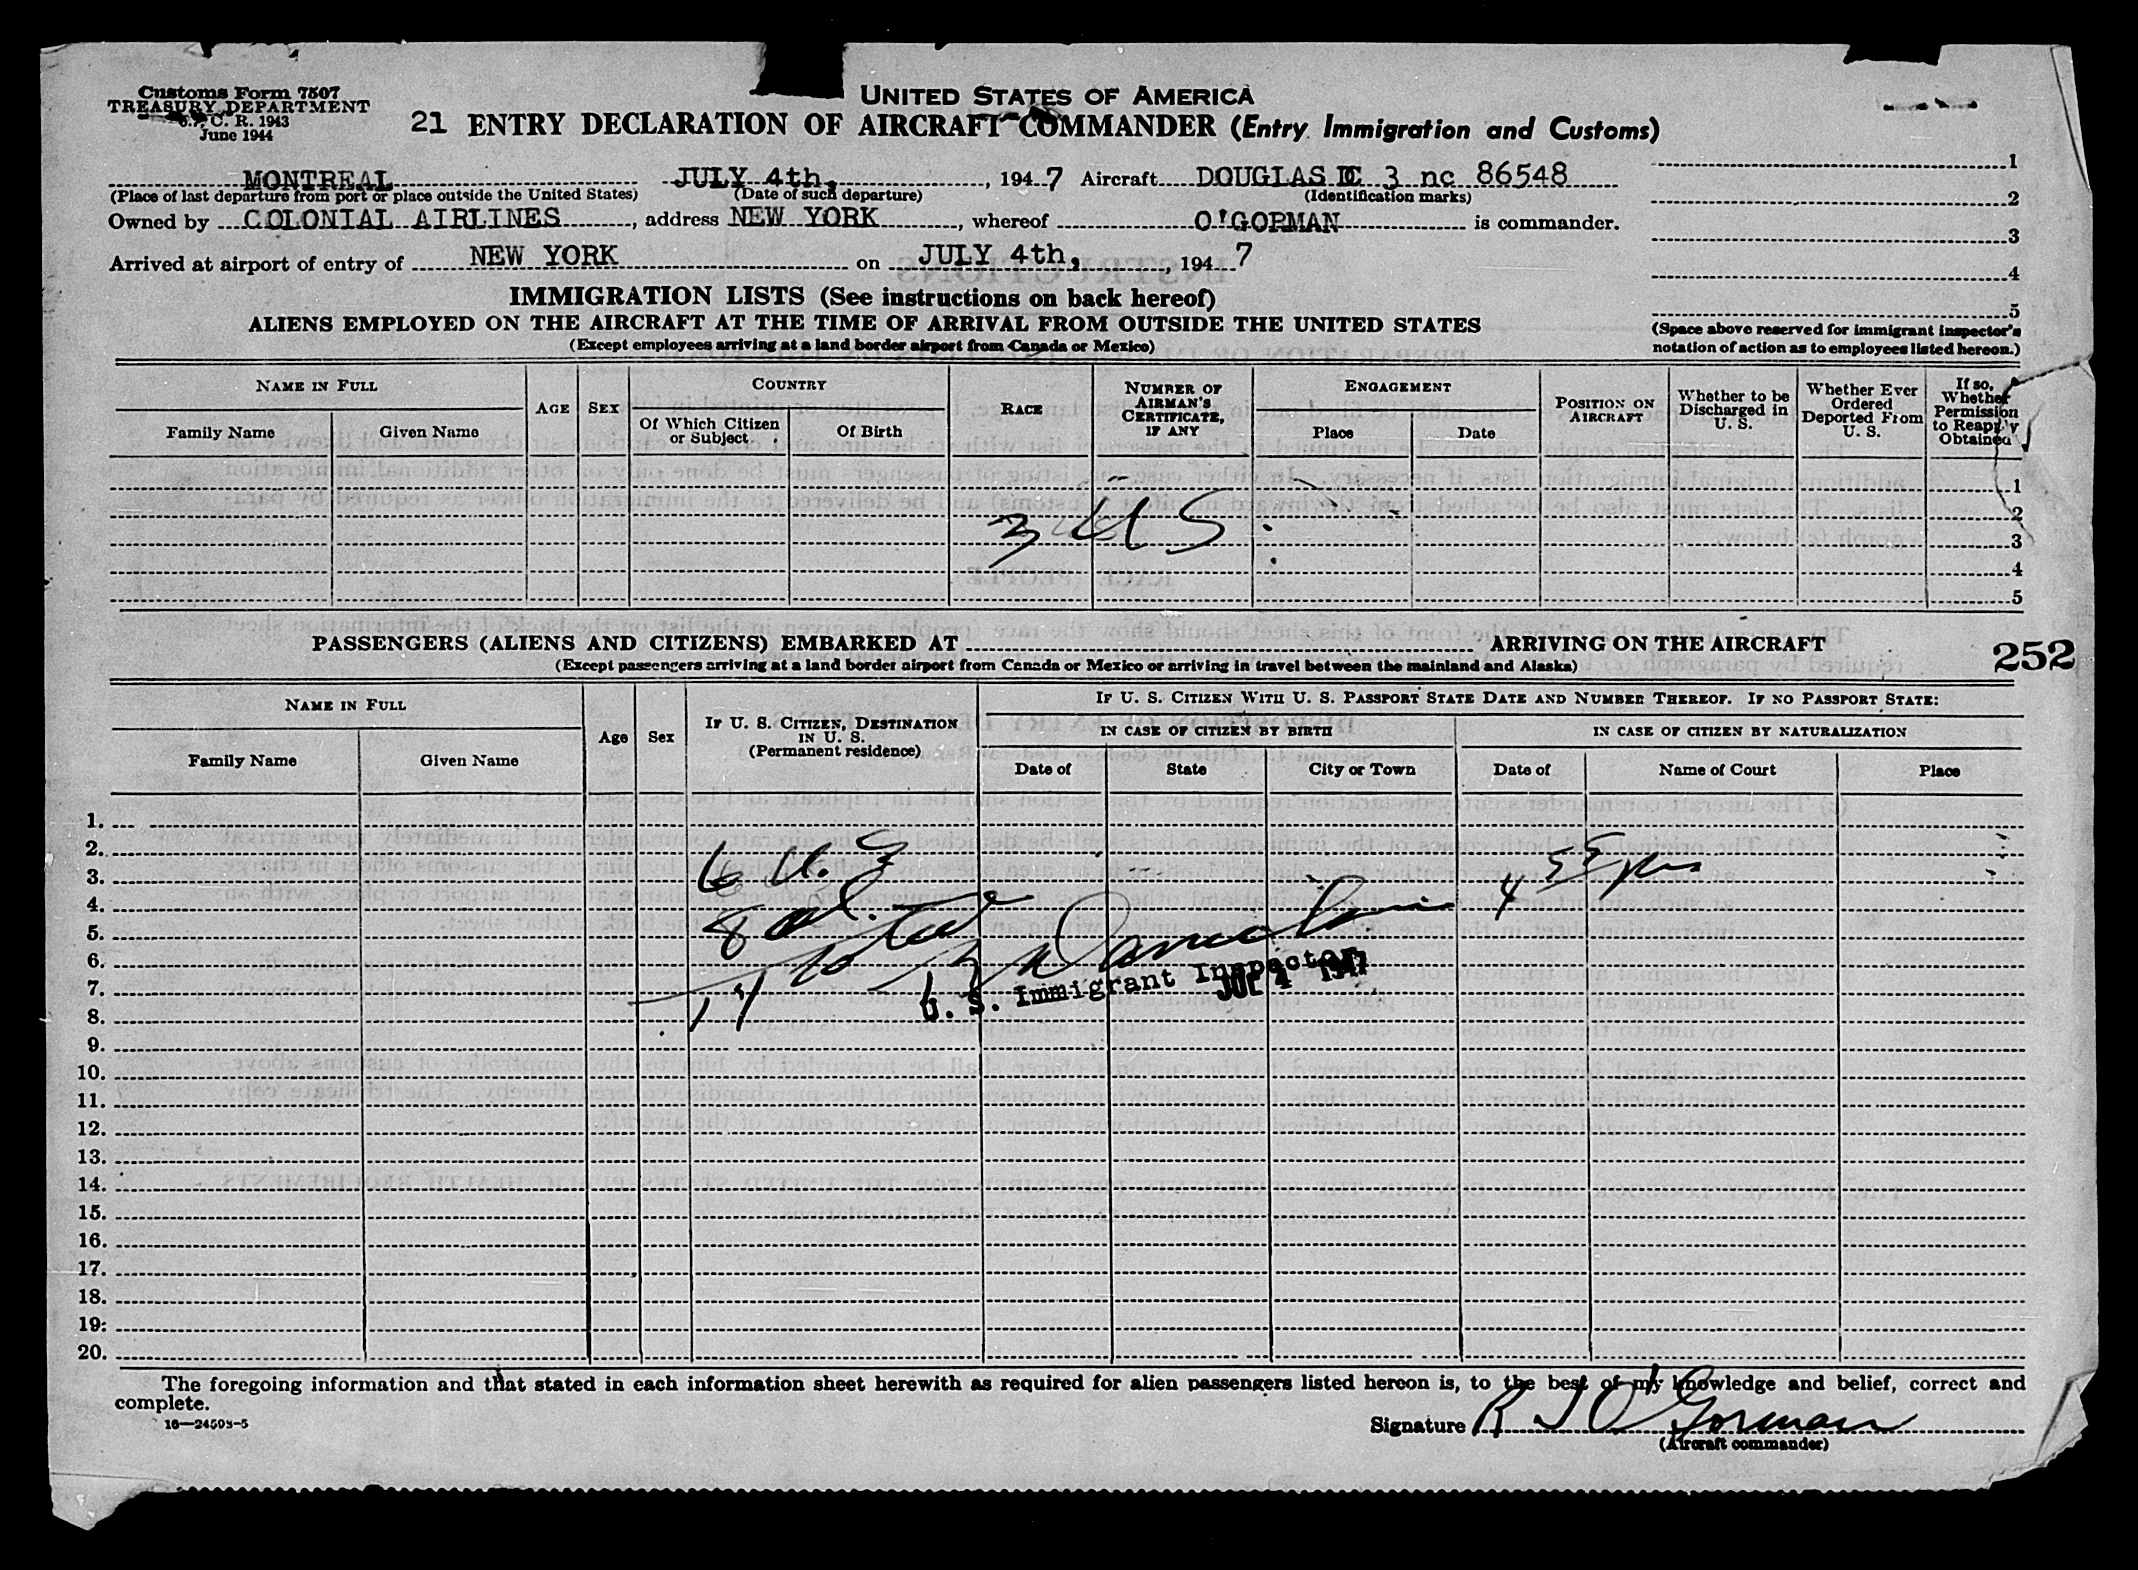 Customs Form 7507
TREASURY DEPARTMENT
C. R. 1943
June 1944
UNITED STATES OF AMERICA
21 ENTRY DECLARATION OF AIRCRAFT COMMANDER (Entry Immigration and Customs)
MONTREAL JULY 4th, 1947 Aircraft DOUGLAS DC 3 nc 86548
(Place of last departure from port or place outside the United States) (Date of such departure) (Identification marks)
Owned by COLONIAL AIRLINES, address NEW YORK, whereof O'GORMAN is commander.
Arrived at airport of entry of NEW YORK on JULY 4th, 1947
1
2
3
4
5
(Space above reserved for immigrant inspector's
notation of action as to employees listed hereon.)
IMMIGRATION LISTS (See instructions on back hereof)
ALIENS EMPLOYED ON THE AIRCRAFT AT THE TIME OF ARRIVAL FROM OUTSIDE THE UNITED STATES
(Except employees arriving at a land border airport from Canada or Mexico)
NAME IN FULL
Family Name Given Name
AGE
SEX
COUNTRY
Of Which Citizen or Subject
Of Birth
RACE
NUMBER OF AIRMAN'S CERTIFICATE, IF ANY
ENGAGEMENT
Place Date
POSITION ON AIRCRAFT
Whether to be Discharged in U. S.
Whether Ever Ordered Deported From U. S.
If so, Whether Permission to Reapply Obtained
1
2
3 US
3
4
5
PASSENGERS (ALIENS AND CITIZENS) EMBARKED AT ARRIVING ON THE AIRCRAFT
252
(Except passengers arriving at a land border airport from Canada or Mexico or arriving in travel between the mainland and Alaska)
NAME IN FULL
Family Name Given Name
Age
Sex
IF U. S. CITIZEN, DESTINATION IN U. S.
(Permanent residence)
IF U. S. CITIZEN WITH U. S. PASSPORT STATE DATE AND NUMBER THEREOF. IF NO PASSPORT STATE:
IN CASE OF CITIZEN BY BIRTH
Date of State City or Town
IN CASE OF CITIZEN BY NATURALIZATION
Date of Name of Court Place
1.
2.
3. 6 U.S
4. 4
5. 8 al. Total
6.
7. 14
U. S. Immigrant Inspector
JUL 4 1947
8.
9.
10.
11.
12.
13.
14.
15.
16.
17.
18.
19.
20.
The foregoing information and that stated in each information sheet herewith as required for alien passengers listed hereon is, to the best of my knowledge and belief, correct and
complete.
16—24503-5
Signature R J O'Gorman
(Aircraft commander)